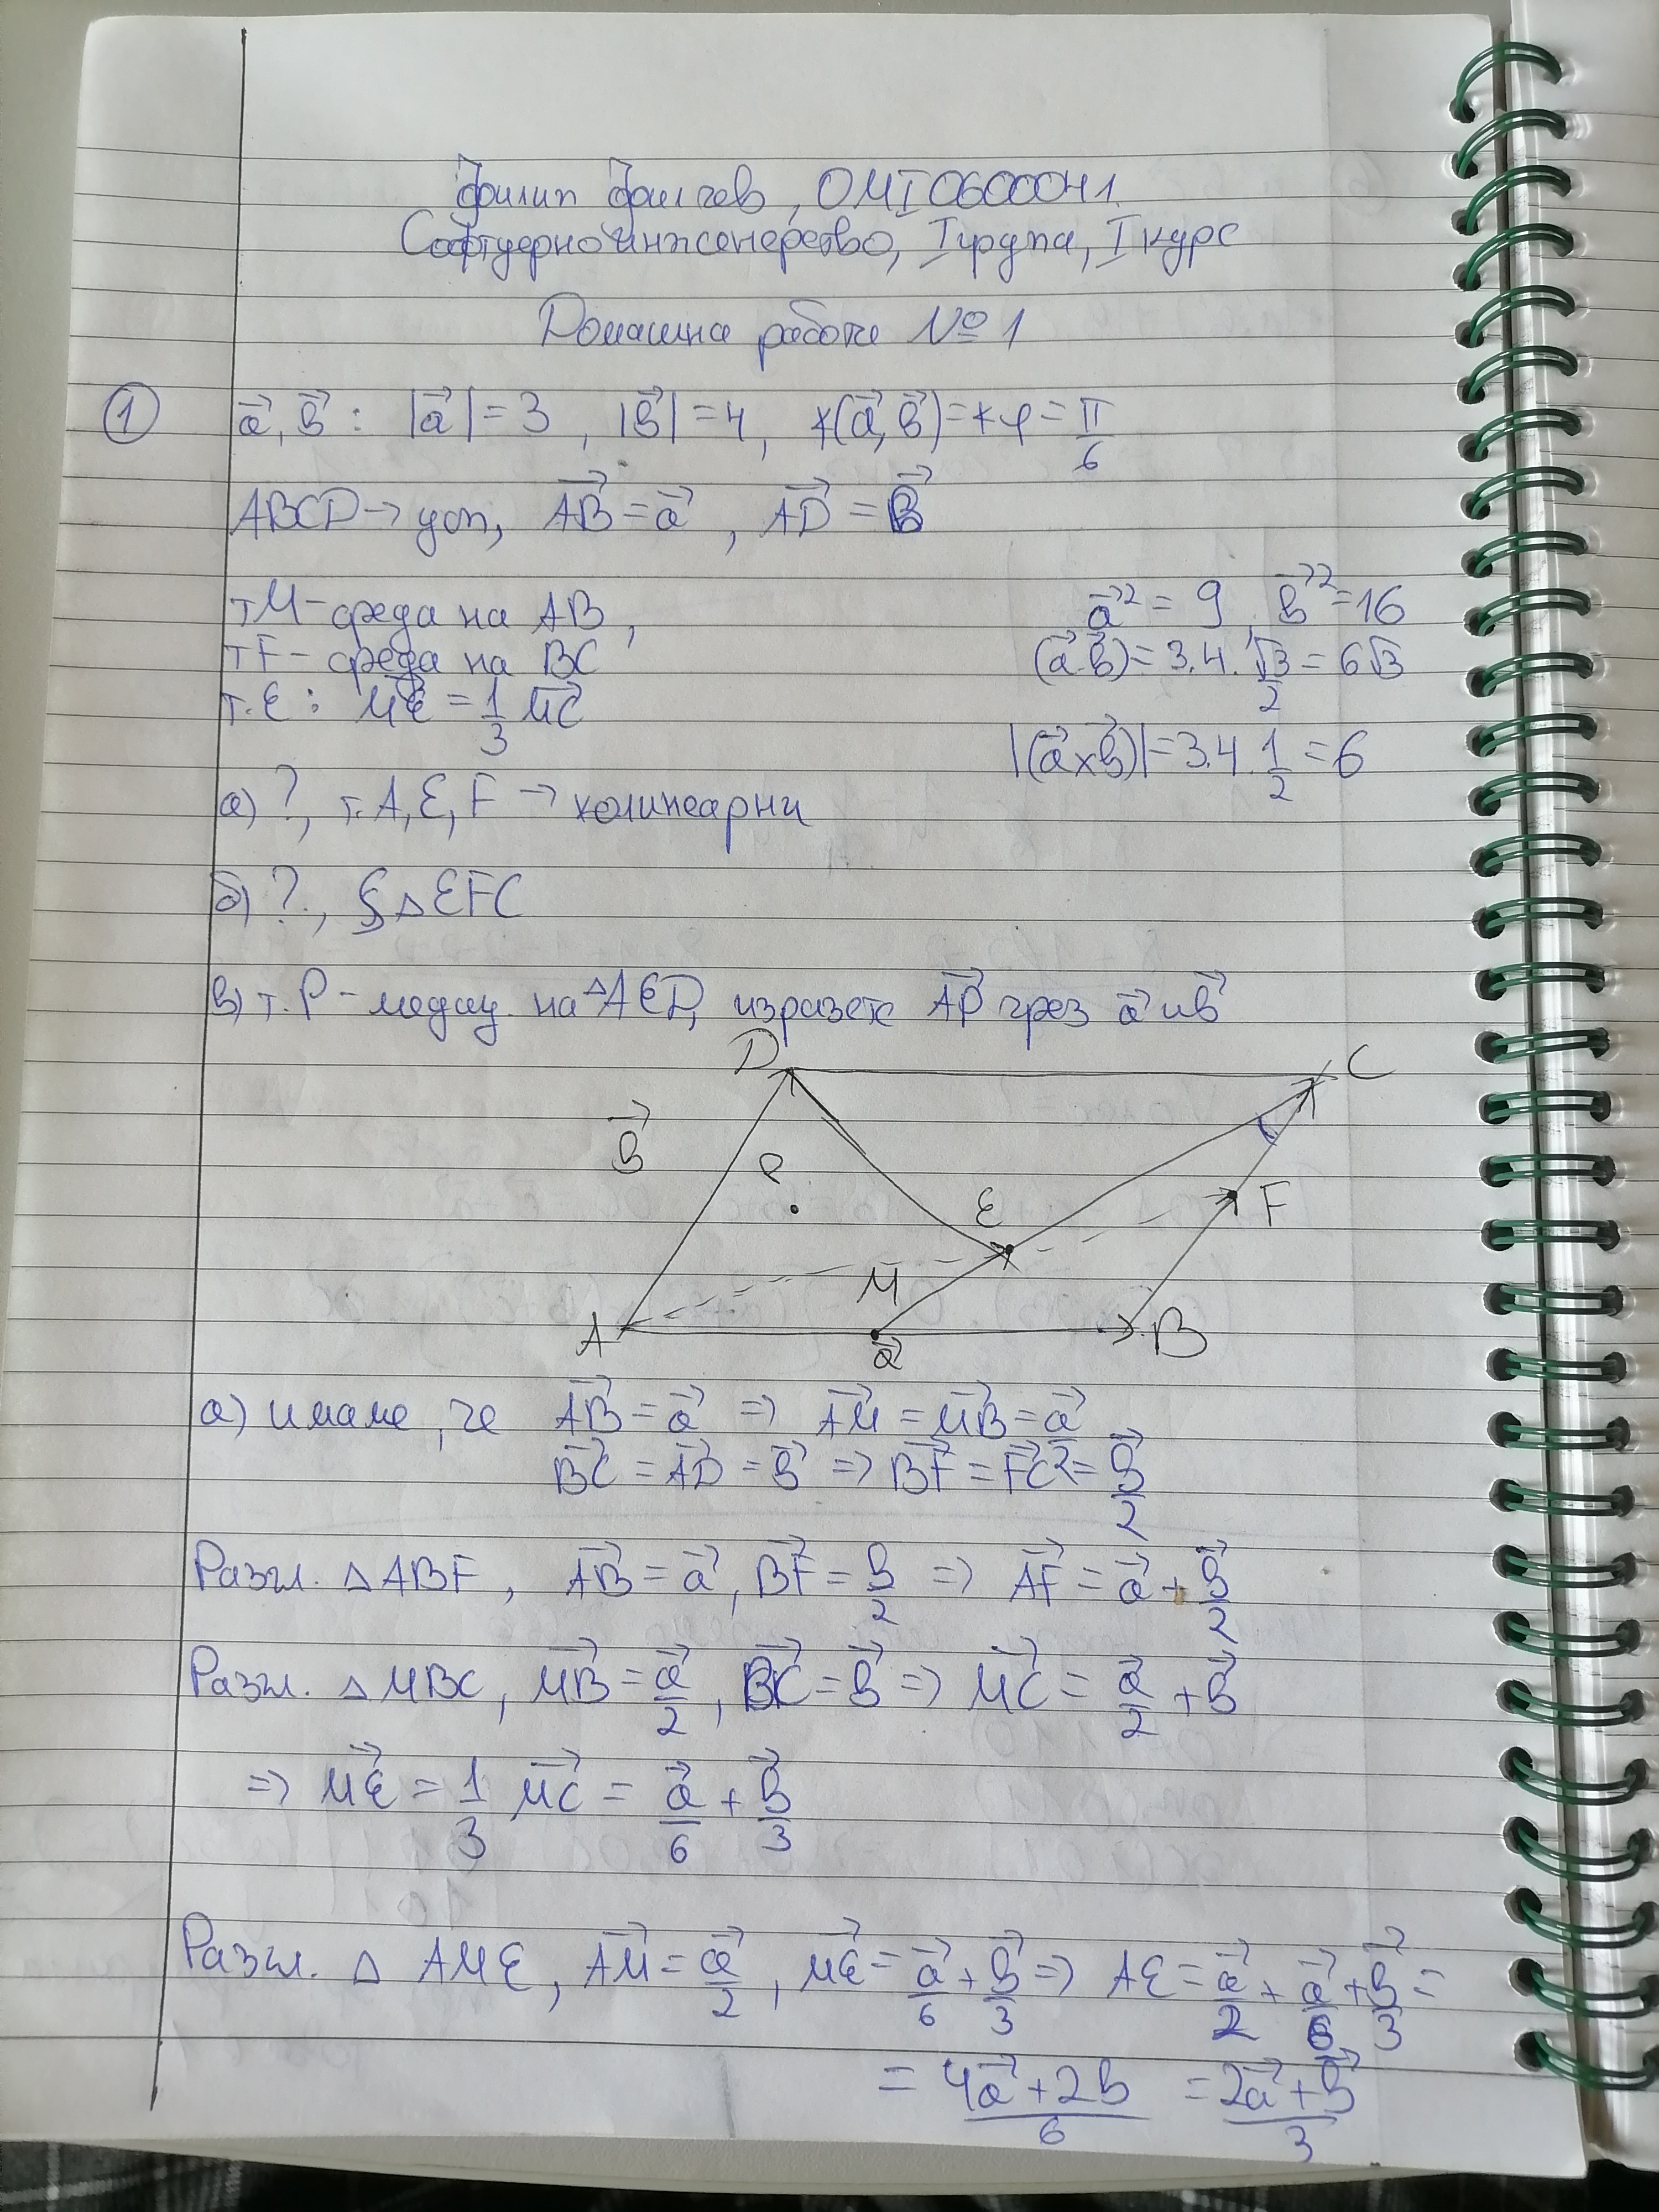 Филип Филчев, 0MI0600041
Софтуерно инженерство, I група, I курс
Домашна работа №1
① a⃗, b⃗ : |a⃗| = 3 , |b⃗| = 4, ∢(a⃗, b⃗) = ∢φ = π/6
ABCD → усп, AB⃗ = a⃗ , AD⃗ = b⃗
т M - среда на AB,
т F - среда на BC
т. E : ME⃗ = 1/3 MC⃗
a⃗² = 9, b⃗² = 16
(a⃗.b⃗) = 3.4.√3/2 = 6√3
|(a⃗×b⃗)| = 3.4.1/2 = 6
а) ?, т. A, E, F → колинеарни
б) ?, S△EFC
в) т. P - медиц. на △AED, изразете AP⃗ чрез a⃗ и b⃗
D C
b⃗
P
E F
M
A a⃗ B
а) имаме, че AB⃗ = a⃗ => AM⃗ = MB⃗ = a⃗/2
BC⃗ = AD⃗ = b⃗ => BF⃗ = FC⃗ = b⃗/2
Разгл. △ABF, AB⃗ = a⃗, BF⃗ = b⃗/2 => AF⃗ = a⃗ + b⃗/2
Разгл. △MBC, MB⃗ = a⃗/2, BC⃗ = b⃗ => MC⃗ = a⃗/2 + b⃗
=> ME⃗ = 1/3 MC⃗ = a⃗/6 + b⃗/3
Разгл. △ AME, AM⃗ = a⃗/2, ME⃗ = a⃗/6 + b⃗/3 => AE = a⃗/2 + a⃗/6 + b⃗/3 =
= (4a⃗ + 2b)/6 = (2a⃗ + b⃗)/3